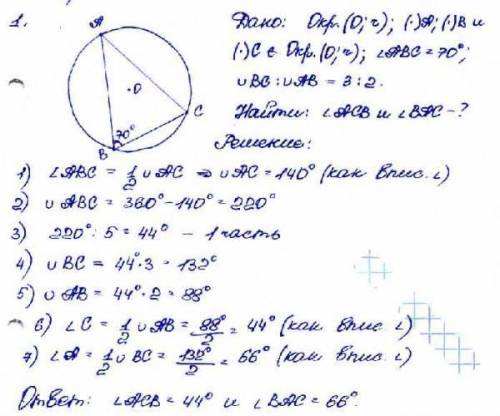 1.
A
O
C
B
70°
Дано: Окр.(О; r); (·)A; (·)B и
(·)C ∈ Окр.(О; r); ∠ABC = 70°;
∪BC : ∪AB = 3 : 2.
Найти: ∠ACB и ∠BAC - ?
Решение:
1) ∠ABC = 1/2 ∪AC ⇒ ∪AC = 140° (как впис. ∠)
2) ∪ABC = 360° - 140° = 220°
3) 220° : 5 = 44° - 1 часть
4) ∪BC = 44° · 3 = 132°
5) ∪AB = 44° · 2 = 88°
6) ∠C = 1/2 ∪AB = 88°/2 = 44° (как впис. ∠)
7) ∠A = 1/2 ∪BC = 132°/2 = 66° (как впис. ∠)
Ответ: ∠ACB = 44° и ∠BAC = 66°.